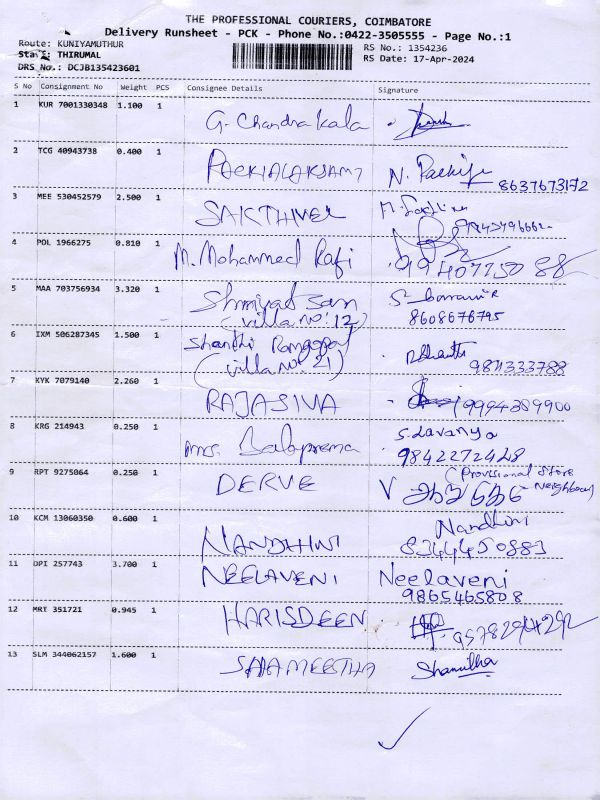 THE PROFESSIONAL COURIERS, COIMBATORE
Delivery Runsheet - PCK - Phone No.:0422-3505555 - Page No.:1
Route: KUNIYAMUTHUR RS No.: 1354236
Staff: THIRUMAL RS Date: 17-Apr-2024
DRS No.: DCJB135423601
S No Consignment No Weight PCS Consignee Details Signature
1 KUR 7001330348 1.100 1
G. Chandrakala
2 TCG 40943738 0.400 1
PACKIALAKSAMI N.
8637673172
3 MEE 530452579 2.500 1
SAKTHIVEL
4 POL 1966275 0.810 1
M. Mohammed Rafi 9940775088
5 MAA 703756934 3.320 1
(villa no: 12) 8608676795
6 IXM 506287345 1.500 1
Shanthi Rangopal
(villa no: 21) 9811333788
7 KYK 7079140 2.260 1
RAJASIVA 9994389900
8 KRG 214943 0.250 1
Mrs. Balaprema S. Lavanya
9842272428
9 RPT 9275064 0.250 1
DERVE (Provisional Store
Neighbour)
10 KCM 13060350 0.600 1
NANDHINI Nandhini
8344450883
11 DPI 257743 3.700 1
NEELAVENI Neelaveni
9865465808
12 MRT 351721 0.945 1
HARISDEEN 9578294292
13 SLM 344062157 1.600 1